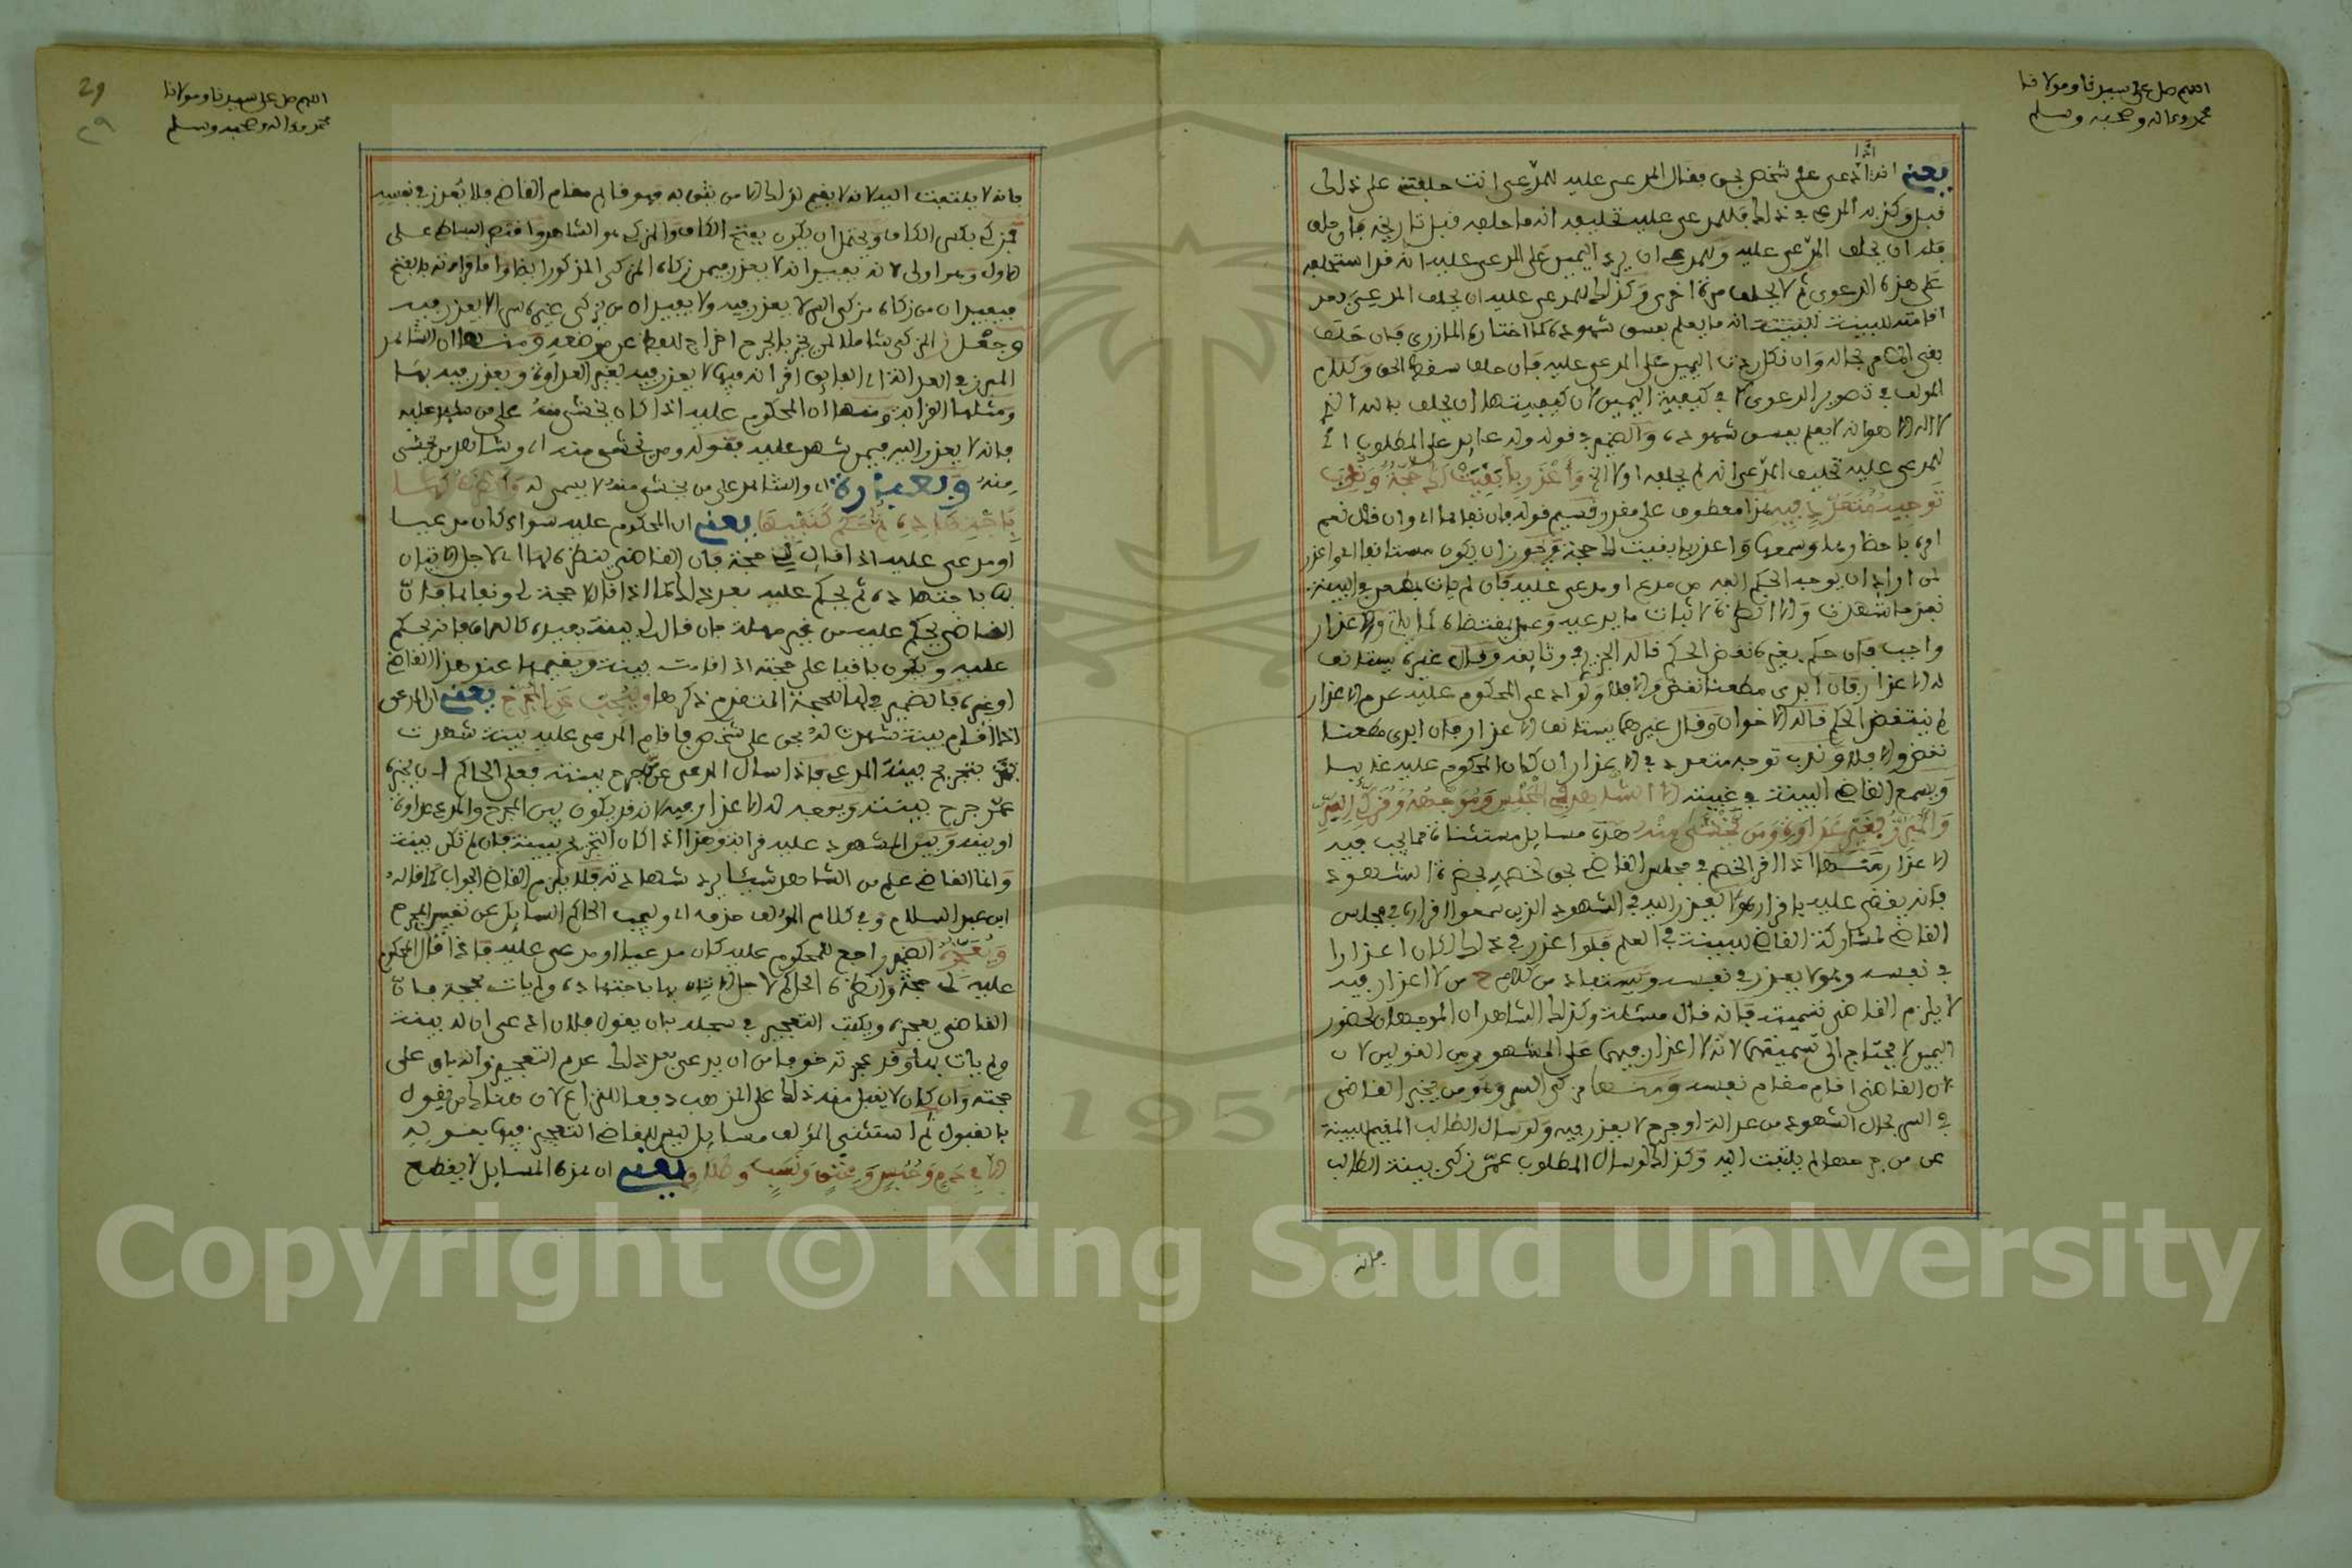 اللهم صل على سيدنا ومولانا
محمد وعلى اله وصحبه وسلم
يعني انه اذا ادعى على شخص بحق فقال المدعى عليه للمدعي انت حلفتني على ذلك
قبل وكذبه المدعي في ذلك فللمدعى عليه تحليفه انه ما حلفه قبل تاريخه فان حلف
فله ان يحلف المدعى عليه وللمدعي ان يرد اليمين على المدعى عليه انه قد استحلفه
على هذه الدعوى ثم لا يحلف مرة اخرى وكذلك للمدعى عليه ان يحلف المدعي بعد
اقامته للبينة انه ما يعلم بفسق شهوده كما اختاره المازري فان حلف
بقي الحكم بحاله وان نكل ردت اليمين على المدعى عليه فان حلف سقط الحق وكلام
المولف في تصوير الدعوى لا في كيفية اليمين لان كيفيتها ان يحلف بالله الذي
لا اله الا هو انه لا يعلم بفسق شهوده والضمير في قوله وله عايد على المطلوب اي
للمدعى عليه تحليف المدعي انه لم يحلفه اولا الخ واعذر بابقيت لك حجة وندب
توجيه متعدد فيه هذا معطوف على مقدر قسيم قوله فان نفاها اي وان قال نعم
واجب فان حكم بغيره نقض الحكم قاله الجزيري في وثايقه وقال غيره يستانف
له الاعذار فان ابدى مطعنا نقض والا فلا ولو ادعى المحكوم عليه عدم الاعذار
لم ينتقض الحكم قاله الاخوان وقال غيرهما يستانف الاعذار فان ابدى مطعنا
نقض والا فلا وندب توجه متعدد في الاعذار ان كان المحكوم عليه غايبا
ويسمع القاضي البينة في غيبته الا الشاهد بما في المجلس وموجهه ومزكي السر
والمبرز بغير عداوة ومن يخشى منه هذه مسايل مستثناة مما يجب فيه
الاعذار منها اذا اقر الخصم في مجلس القاضي بحق لخصمه بحضرة الشهود
فانه يقضى عليه باقراره ولا يعذر اليه في الشهود الذين سمعوا اقراره في مجلس
القاضي لمشاركة القاضي للبينة في العلم فلو اعذر في ذلك لكان اعذارا
في نفسه وهو لا يعذر في نفسه ويستفاد من كلام ح من لا اعذار فيه
لا يلزم القاضي تسميته فانه قال مسئلة وكذلك الشاهدان الموجهان لحضور
اليمين لا يحتاج الى تسميتهما لانه لا اعذار فيهما على المشهور من القولين لان
لان القاضي اقام مقام نفسه ومنها مزكي السر وهو من يخبر القاضي
في السر بحال الشهود من عدالة او جرح لا يعذر فيه ولو سال الطالب المقيم للبينة
عن من جرحها لم يلتفت اليه وكذلك لو سال المطلوب عمن زكى بينة الطالب
فانه
29
٢٩
اللهم صل على سيدنا ومولانا
محمد وعلى اله وصحبه وسلم
فانه لا يلتفت اليه لانه لا يقيم لذلك الا من يثق به فهو قايم مقام القاضي فلا يعذر في نفسه
فمزكي بكسر الكاف ويحتمل ان يكون بفتح الكاف والمزكى هو الشاهد واقتصر البساطي على
الاول وهو اولى لانه يفيد انه لا يعذر فيمن زكاه المزكي المذكور ايضا واما قراءته بالفتح
فيفيد ان من زكاه مزكي السر لا يعذر فيه ولا يفيد ان من يزكي غيره سرا لا يعذر فيه
وجعل المزكي شاملا لمن يخبر بالجرح اخراج للفظ عن موضعه ومنها ان الشاهد
المبرز في العدالة الفايق اقرانه فيها لا يعذر فيه لغير العداوة ويعذر فيه بها
ومثلها القرابة ومنها ان المحكوم عليه اذا كان يخشى منه على من شهد عليه
فانه لا يعذر اليه فيمن شهد عليه فقوله ومن يخشى منه اي وشاهد من يخشى
منه وبعبارة اي والشاهد على من يخشى منه لا يسمى له وانظره لها
باجتهاده ثم حكم كنفيها يعني ان المحكوم عليه سواء كان مدعيا
او مدعى عليه اذا قال لي حجة فان القاضي ينظره لها اي لاجل الاتيان
بها باجتهاده ثم يحكم عليه بعد ذلك كما اذا قال لا حجة لي ونفاها فان
القاضي يحكم عليه من غير مهلة فان قال لي بينة بعيدة كالعراق فانه يحكم
عليه ويكون باقيا على حجته اذا قامت بينته ويقيمها عند هذا القاضي
او غيره فالضمير في لها للحجة المتقدم ذكرها وليجب عن المجرح يعني ان المدعي
اذا اقام بينة شهدت له بحق على شخص فاقام المدعى عليه بينة شهدت
بتجريح بينة المدعي فاذا سال المدعي عن من جرح بينته فعلى الحاكم ان يخبره
عمن جرح بينته ويوجه له الاعذار فيه لانه قد يكون بين المجرح والمدعي عداوة
او بينه وبين المشهود عليه قرابة وهذا اذا كان التجريح ببينة فان لم تكن بينة
وانما القاضي علم من الشاهد شيئا يرد شهادته فلا يلزم القاضي الجواب كما قاله
ابن عبد السلام وفي كلام المؤلف حذف اي وليجب الحاكم السايل عن تعيين المجرح
ويعجزه الضمير راجع للمحكوم عليه كان مدعيا او مدعى عليه فاذا قال المحكوم
عليه لي حجة وانظره الحاكم لاجل الاتيان بها باجتهاده ولم يات بحجة فان
القاضي يعجزه ويكتب التعجيز في سجله بان يقول فلان ادعى ان له بينة
ولم يات بها وقد عجزته خوفا من ان يدعي بعد ذلك عدم التعجيز وانه باق على
حجته وان كان لا يقبل منه ذلك على المذهب دفعا للنزاع لان هناك من يقول
بالقبول ثم استثنى المؤلف مسايل ليس للقاضي التعجيز فيها بقوله
الا في دم وحبس وعتق ونسب وطلاق يعني ان هذه المسايل لا يقطع
Copyright © King Saud University
1957